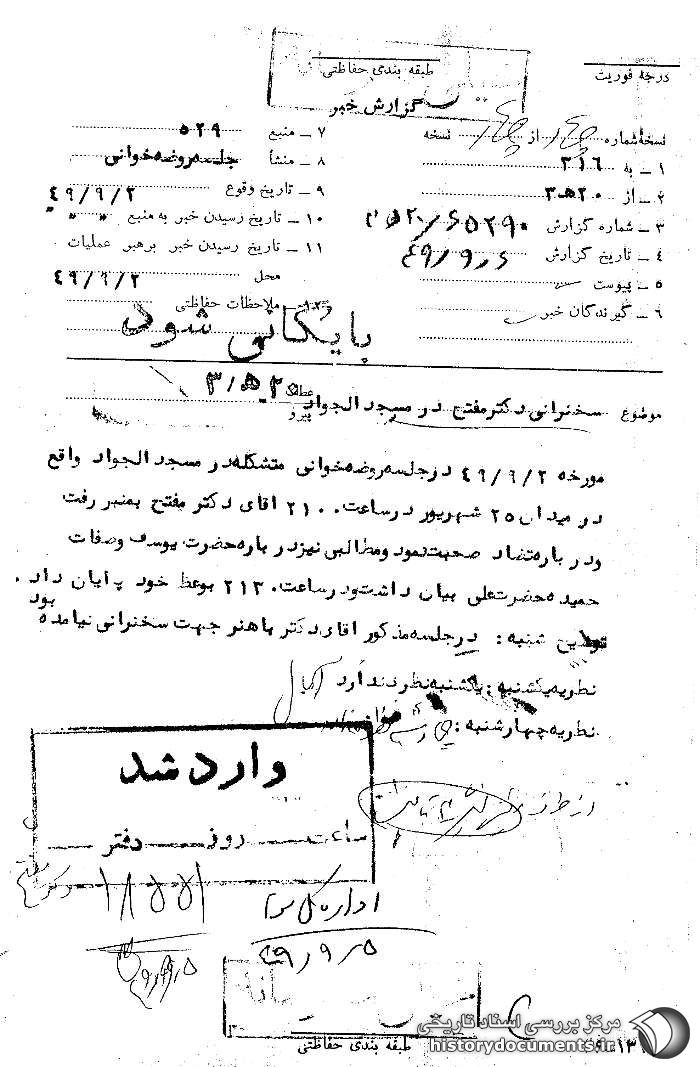 طبقه بندی حفاظتی
درجه فوریت
گزارش خبر
نسخهٔ شماره چهار از چهار نسخه
۱ ــ به ۳۱۶
۲ ــ از ۲۰ه‍۳
۳ ــ شماره گزارش
۴ ــ تاریخ گزارش ۴۹/۹/۶
۵ ــ پیوست
۶ ــ گیرندگان خبر
۷ ــ منبع ۵۲۹
۸ ــ منشأ جلسه روضه خوانی
۹ ــ تاریخ وقوع ۴۹/۹/۲
۱۰ ــ تاریخ رسیدن خبر به منبع " "
۱۱ ــ تاریخ رسیدن خبر برهبر عملیات
محل ۴۹/۹/۲
۱۲ ــ ملاحظات حفاظتی
بایگانی شود
موضوع سخنرانی دکتر مفتح در مسجد الجواد
عطف
پیرو
مورخه ۴۹/۹/۲ در جلسه روضه خوانی متشکله در مسجد الجواد واقع
در میدان ۲۵ شهریور در ساعت ۲۱۰۰ اقای دکتر مفتح بمنبر رفت
ودر باره تضاد صحبت نمود ومطالبی نیز در باره حضرت یوسف وصفات
حمیده حضرت علی بیان داشت ودر ساعت ۲۱۳۰ بوعظ خود پایان داد .
توضیح شنبه : در جلسه مذکور اقای دکتر باهنر جهت سخنرانی نیامده بود
نظریه یکشنبه : یکشنبه نظر ندارد
نظریه چهارشنبه :
وارد شد
ساعت روز دفتر
۱۸۵۵۱
اداره کل سوم
۴۹/۹/۵
طبقه بندی حفاظتی
مرکز بررسی اسناد تاریخی
historydocuments.ir